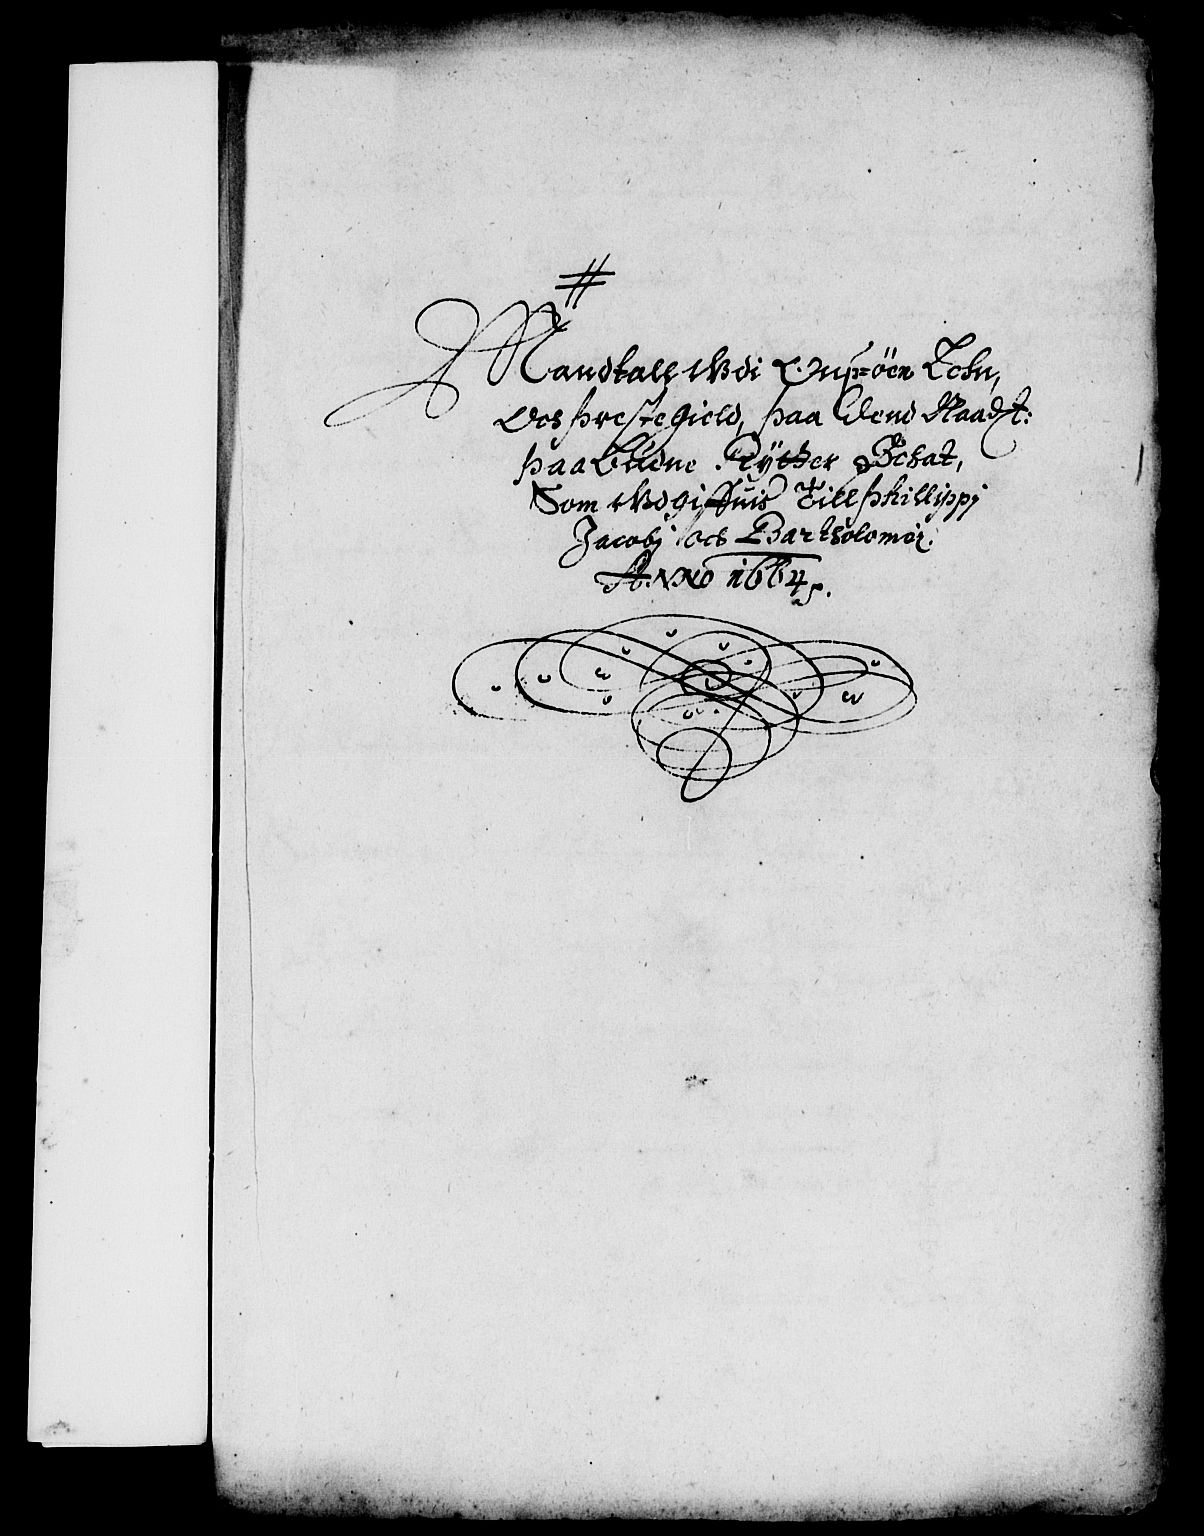 #
Mandtall Wdi Onsøen Lehn,
Oes prestegield, paa dend Naadt:
paabudne Rÿtter Schat,
Som Wdgiffuis Till philippj
Jacobj och Bartholomej.
Anno 1664